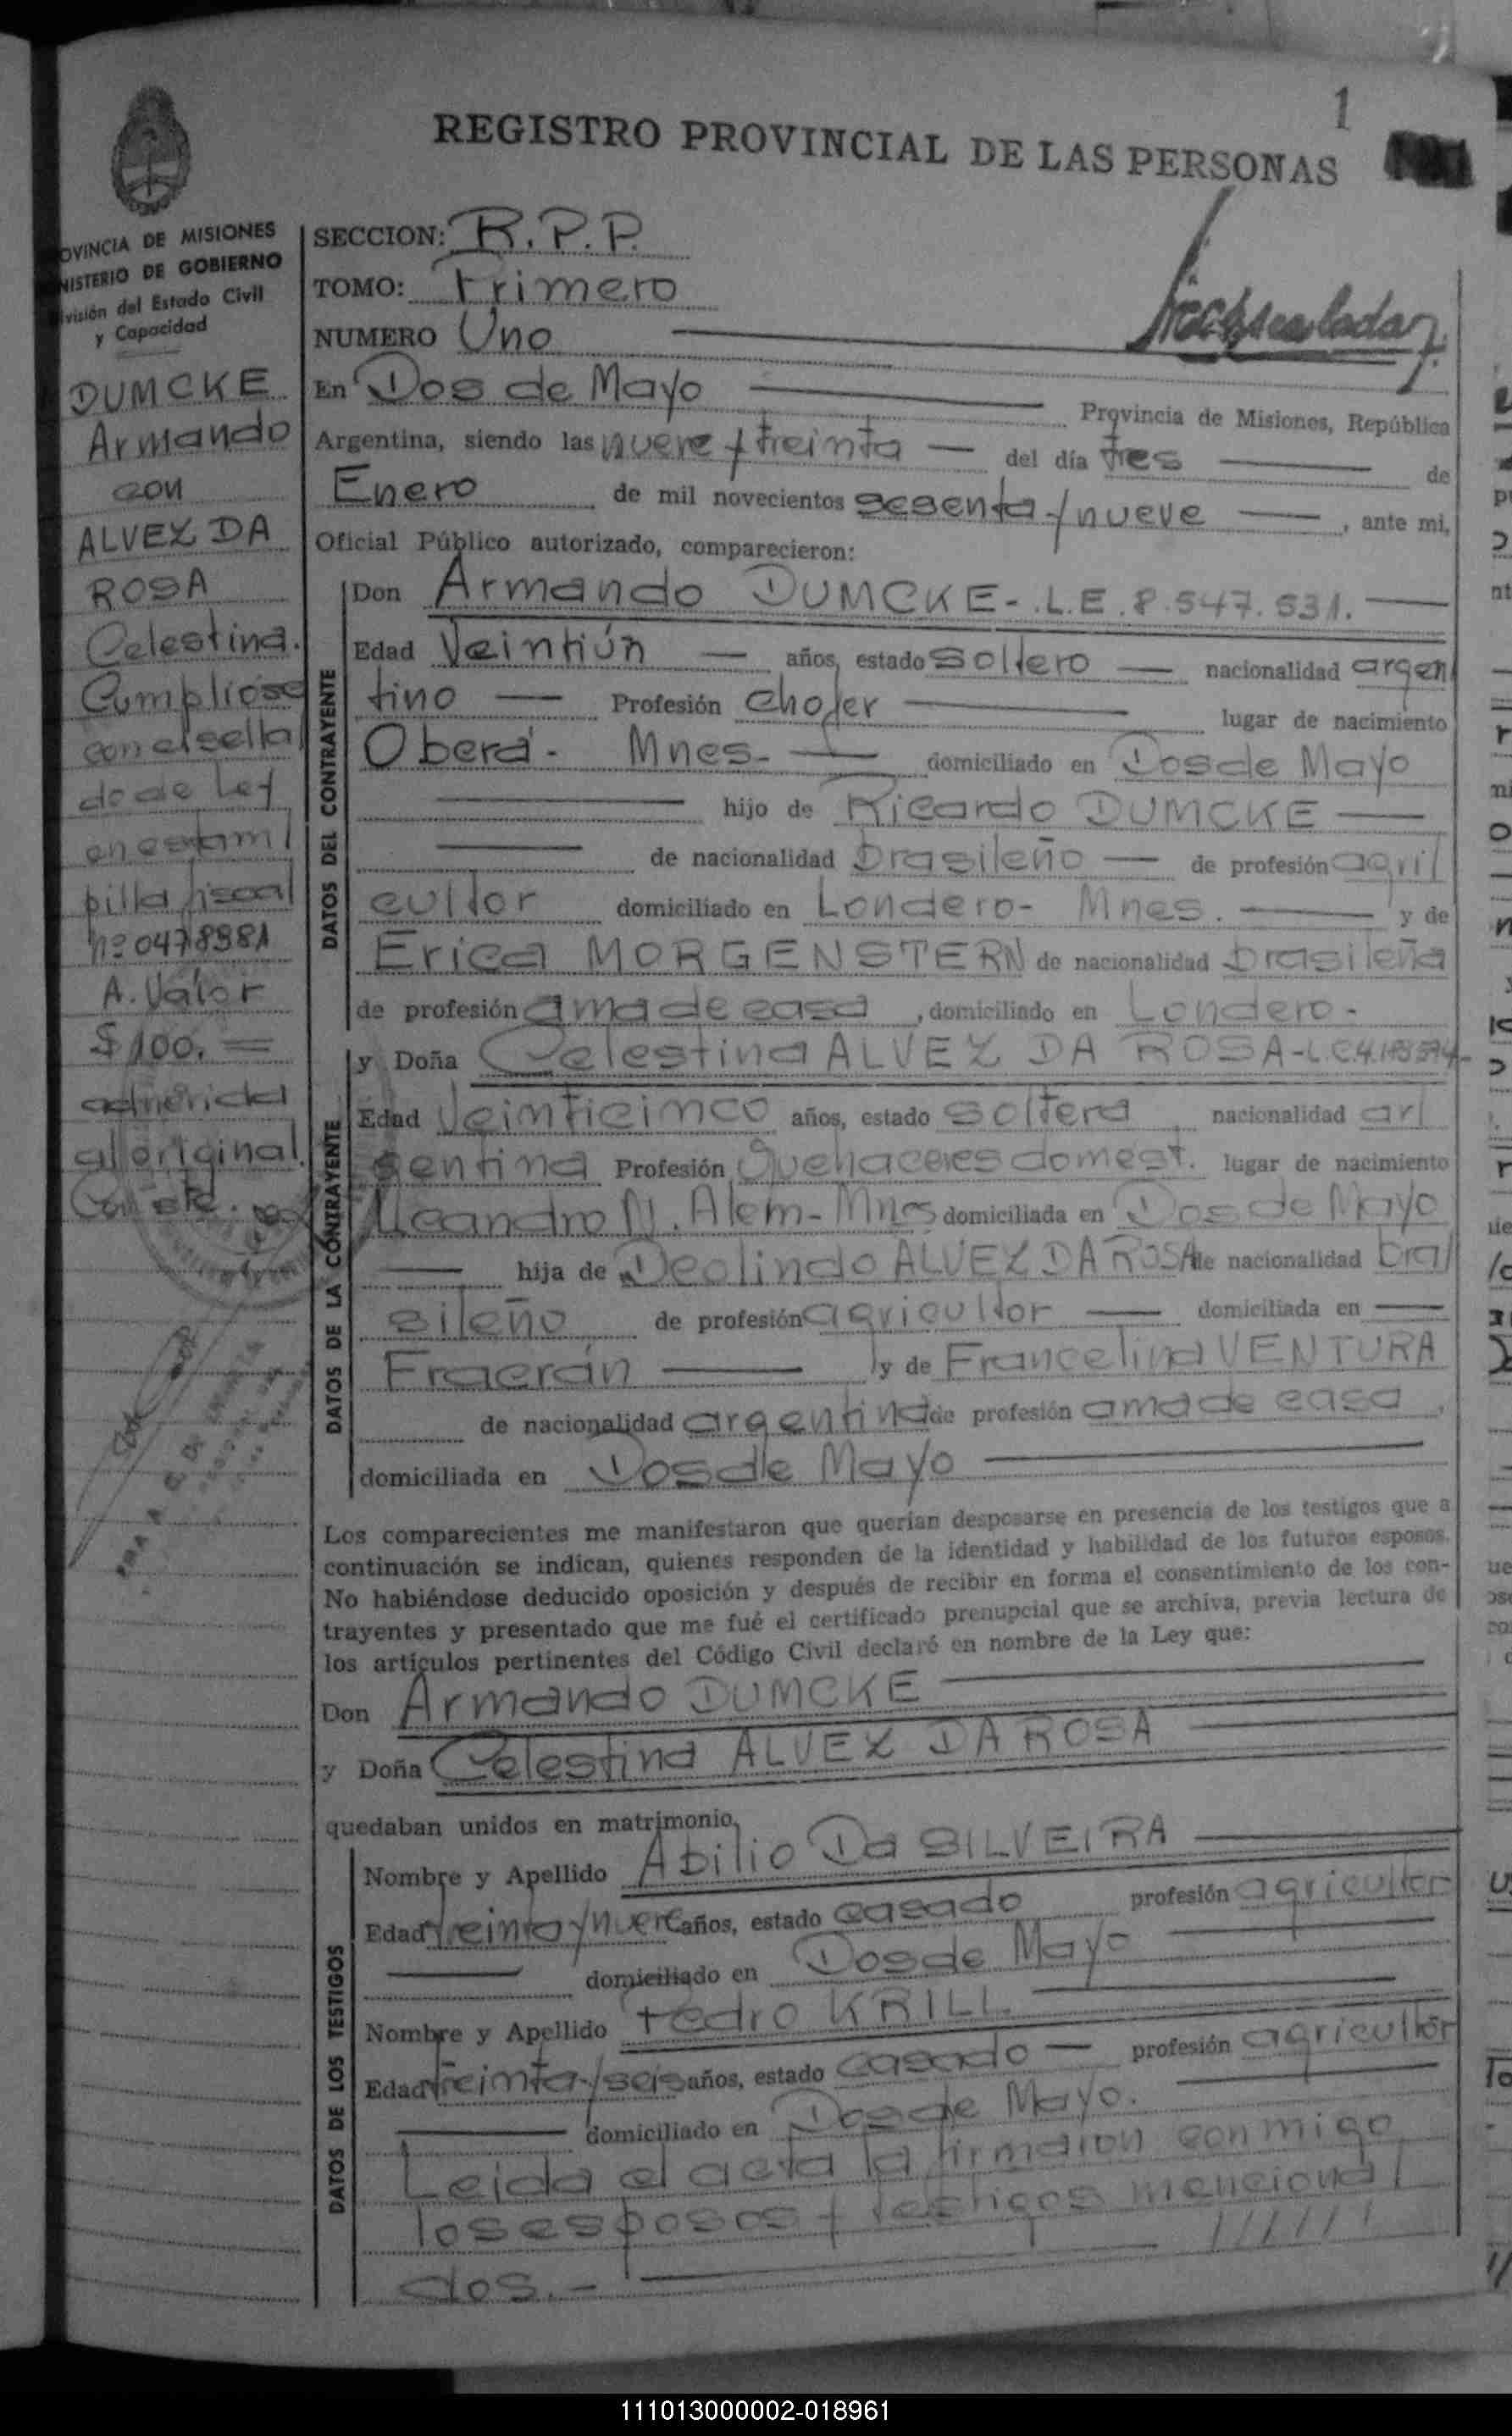 1
REGISTRO PROVINCIAL DE LAS PERSONAS
OVINCIA DE MISIONES
NISTERIO DE GOBIERNO
visión del Estado Civil
y Capacidad
DUMCKE
Armando
con
ALVEZ DA
ROSA
Celestina.
Cumpliose
con el sella/
do de Ley
en estam/
pilla fiscal
nº 0478981
A. Valor
$ 100. =
adherida
al original.
Conste.
SECCION: R.P.P.
TOMO: Primero
NUMERO Uno
En Dos de Mayo Provincia de Misiones, República
Argentina, siendo las nueve y treinta — del día tres — de
Enero de mil novecientos sesenta y nueve — , ante mi,
Oficial Público autorizado, comparecieron:
DATOS DEL CONTRAYENTE
Don Armando DUMCKE-.L.E.8.547.531. —
Edad Veintiún — años, estado soltero — nacionalidad argen/
tino — Profesión chofer — lugar de nacimiento
Oberá- Mnes- — domiciliado en Dos de Mayo
— hijo de Ricardo DUMCKE —
— de nacionalidad brasileño — de profesión agri/
cultor domiciliado en Londero- Mnes. — y de
Erica MORGENSTERN de nacionalidad brasileña
de profesión ama de casa , domiciliado en Londero-
DATOS DE LA CONTRAYENTE
y Doña Celestina ALVEZ DA ROSA-L.C.
Edad Veinticinco años, estado soltera nacionalidad ar/
gentina Profesión Quehaceres domest. lugar de nacimiento
Leandro N. Alem- Mnes domiciliada en Dos de Mayo
— hija de Deolindo ALVEZ DA ROSA de nacionalidad bra/
sileño de profesión agricultor — domiciliada en —
Fracrán — y de Francelina VENTURA
de nacionalidad argentina de profesión ama de casa ,
domiciliada en Dos de Mayo —
Los comparecientes me manifestaron que querían desposarse en presencia de los testigos que a
continuación se indican, quienes responden de la identidad y habilidad de los futuros esposos.
No habiéndose deducido oposición y después de recibir en forma el consentimiento de los con-
trayentes y presentado que me fué el certificado prenupcial que se archiva, previa lectura de
los artículos pertinentes del Código Civil declaré en nombre de la Ley que:
Don Armando DUMCKE —
y Doña Celestina ALVEZ DA ROSA —
quedaban unidos en matrimonio,
DATOS DE LOS TESTIGOS
Nombre y Apellido Abilio Da SILVEIRA —
Edad treinta y nueve años, estado casado profesión agricultor
— domiciliado en Dos de Mayo —
Nombre y Apellido Pedro KRILL. —
Edad treinta y seis años, estado casado — profesión agricultor
— domiciliado en Dos de Mayo. —
Leida el acta la firmaron conmigo
los esposos y testigos menciona/
dos.- — //////
111013000002-018961